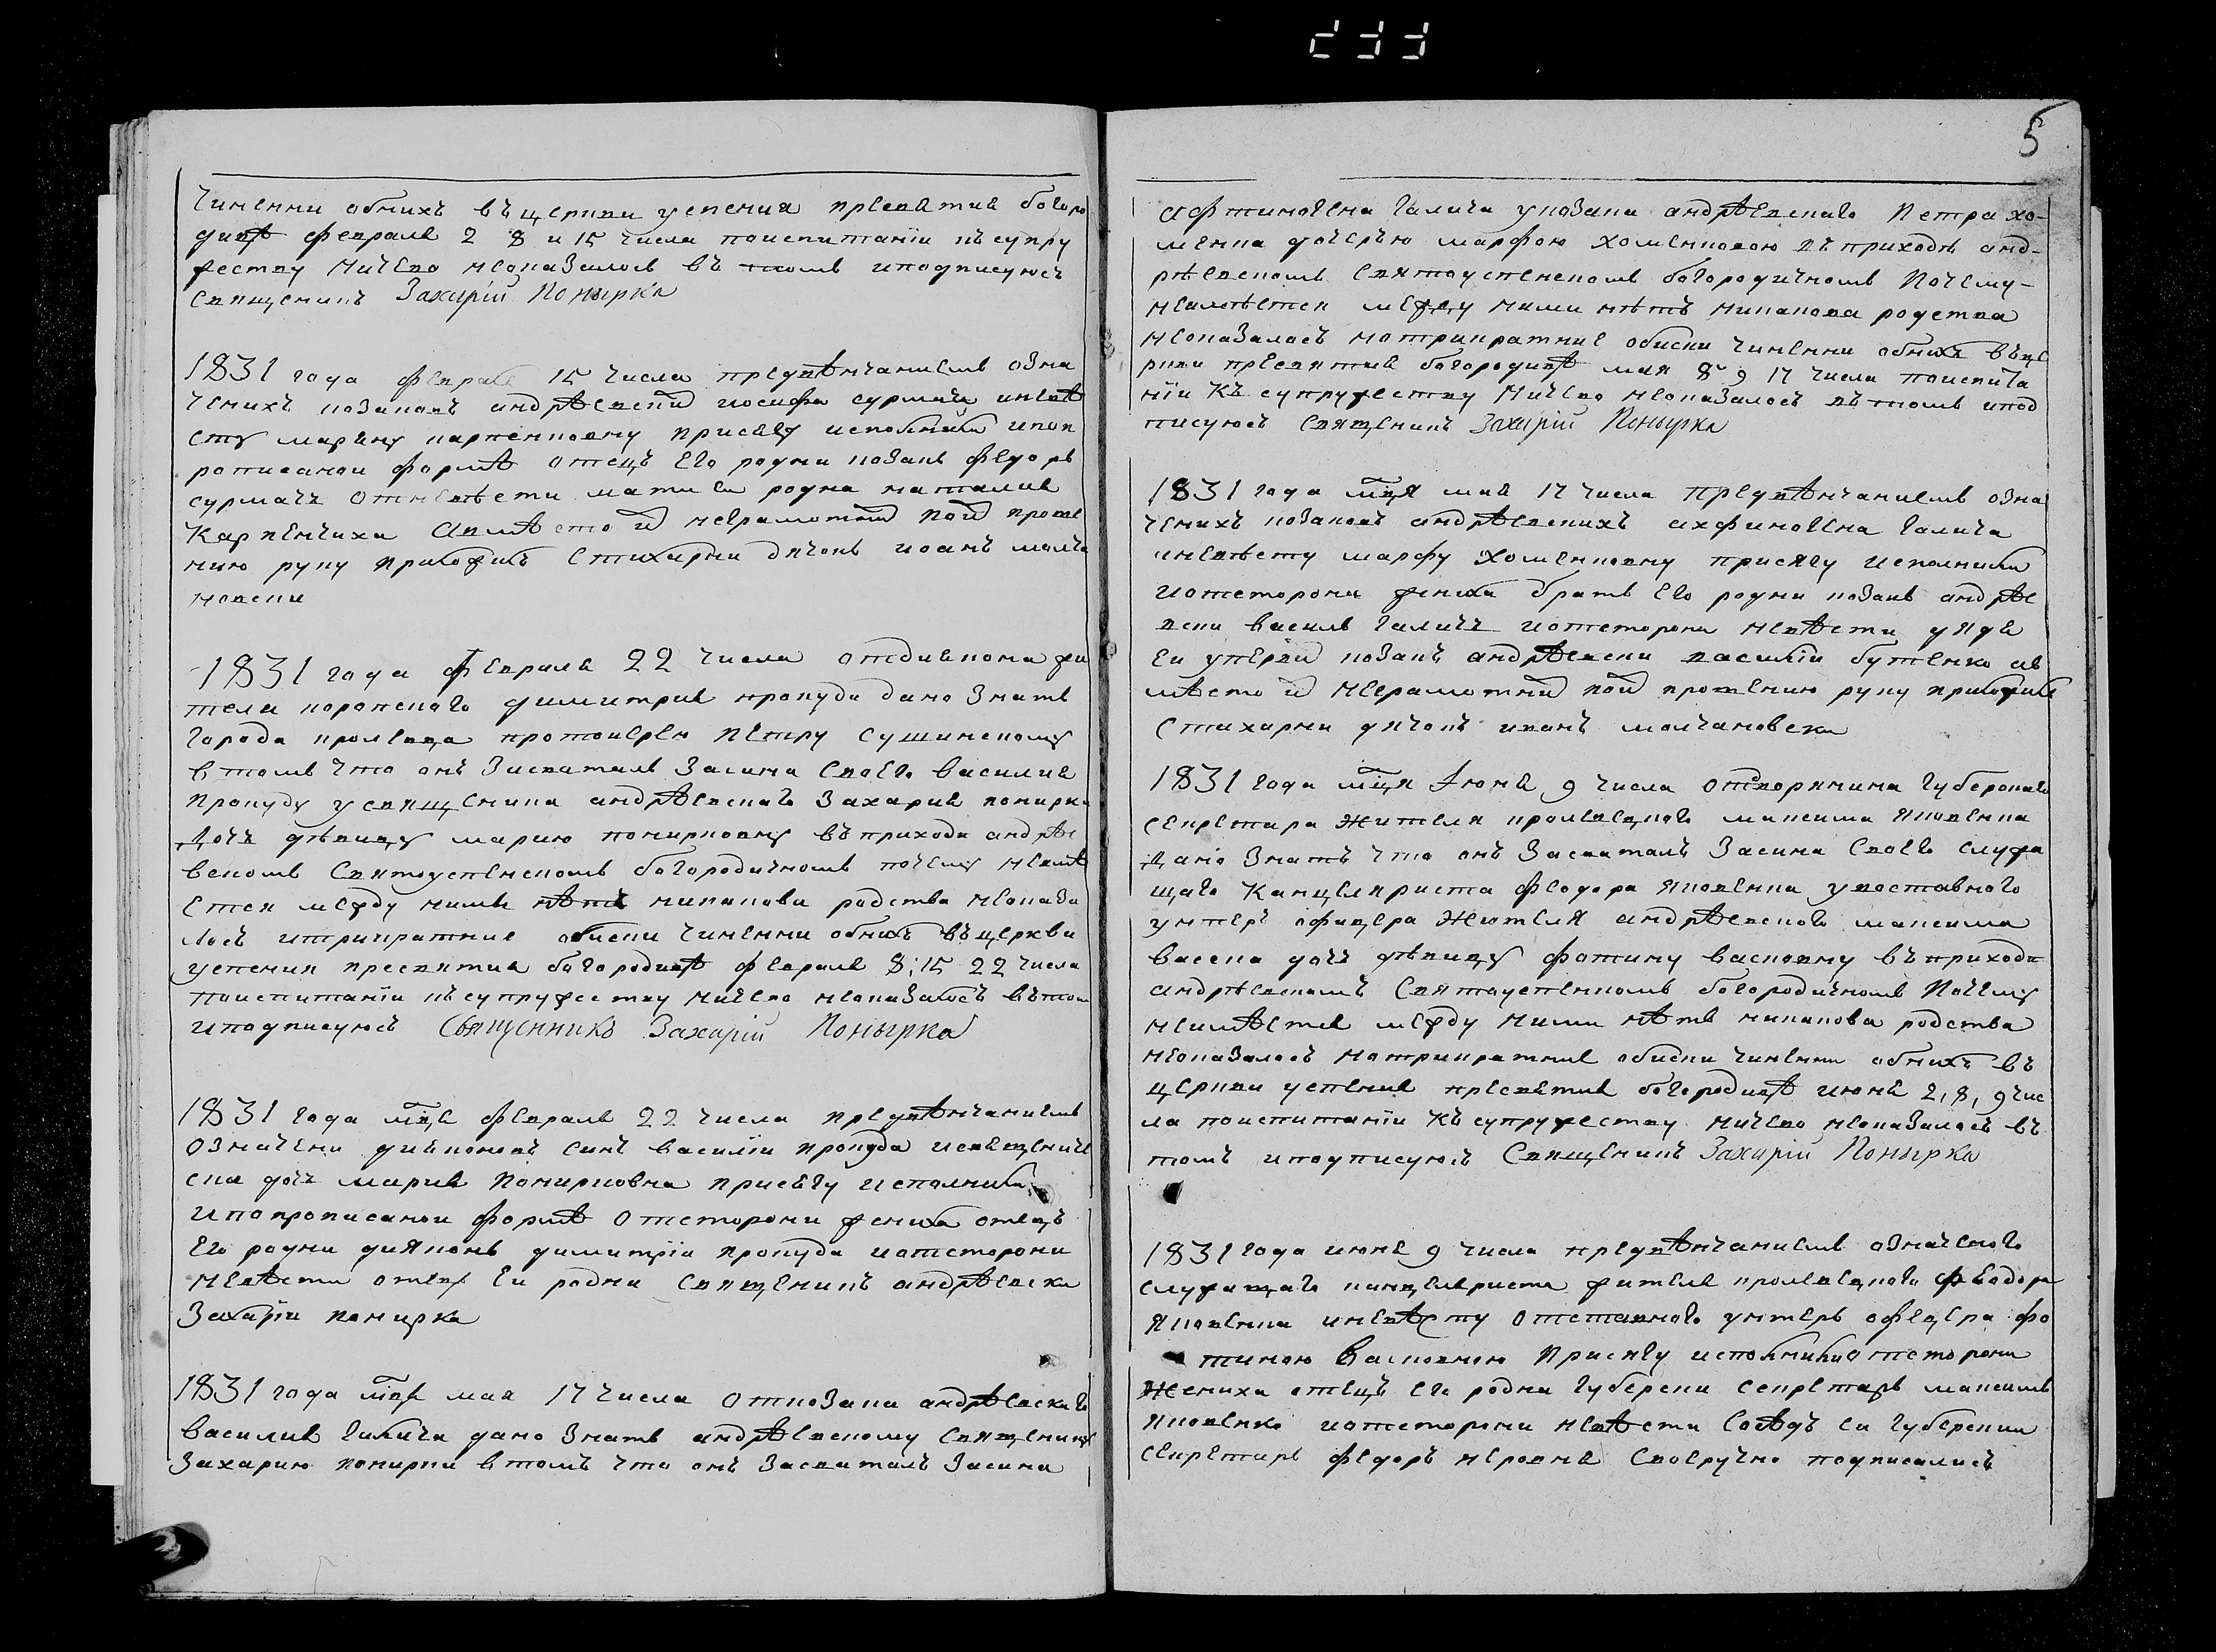 чиненни обнихъ въ церкви успения пресвятиа богоро
дицѣ февраля 2 8 и 15 числа поиспитаніи къ супру
жеству ничево неоказалось въ томъ иподписуюсь
священикъ Захарій Понырка
1831 года февраля 15 числа предвѣнчаниемъ озна
ченихъ козаковъ андрѣевский иосифа сурмача иневѣ
сту марину карпенковну присягу исполнили ипоп
рописаной формѣ отецъ его родни козакъ федоръ
сурмачъ отневѣсти мати еи родна наталия
Карпенчиха авмѣсто й неграмотний пой проше
нию руку приложилъ стихарни дячокъ иоанъ молча
новски
1831 года февраля 22 числа отдиякона жи
теля коропскаго димитрия кропуда дано знать
города кролевца протоиерею петру сушинскому
в томъ что онъ засваталъ засина своего василия
кропуду у священика андрѣевскаго захария понирки
дочъ дѣвицу марию понирковну въ приходи андрѣ
вскомъ святоуспенскомъ богородичномъ почему неимѣ
ется между ними нѣтъ никакова родства неоказа
лось итрикратние обиски чиненни обнихъ въ церкви
успения пресвятия богородицѣ февраля 8, 15 22 числа
поиспитаніи къ супружеству ничево неоказалось въ том
иподписуюсь Священникъ Захарій Понырка
1831 года мца февраля 22 числа предвѣнчаниемъ
означени дияконовъ синъ василіи кропуда исвященичес
ска дочъ мария понирковна присягу исполнили
ипопрописаной формѣ отсторони жениха отецъ
его родни дияконъ димитріи кропуда иотсторони
невѣсти отец еи родни священикъ андрѣевски
Захаріи понирка
1831 года мца мая 17 числа откозака андрѣевскаго
василия галича дано знать андрѣевскому священику
Захарию понирки в томъ что онъ засваталъ засина
5
афтиногена галича укозака андрѣевскаго петра хо-
менка дочерью марфою хоменковою въ приходѣ анд-
рѣевскомъ святоуспенскомъ богородичномъ почему-
неимѣется между ними нѣтъ никакова родства
неоказалось нотрикратние обиски чиненни обнихъ въ це
ркви пресвятия богородицѣ мая 8 9 17 числа поиспита
ніи къ супружеству ничево неоказалось въ томъ ипод
писуюсь священикъ Захарій Понырка
1831 года мця мая 17 числа предвѣнчаниемъ озна
ченихъ козаковъ андрѣевскихъ ахфиногена галича
иневѣсту марфу хоменковну присягу исполнили
иотсторони жениха братъ его родни козакъ андрѣе
вски василь галичъ иотсторони невѣсти дядя
еи уперви козакъ андрѣевски василіи бутенко ав
мѣсто й неграмотний пой прошению руку приложилъ
стихарни дячокъ иванъ молчановски
1831 года мця июня 9 числа отдворянина губерскаго
секретара жителя кролевецкого максима яковенка
дано знать что онъ засваталъ засина своего служа
щаго канцеляриста феодора яковенка уотставного
унтеръ офицера жителя андрѣевского максима
васска дочъ дѣвицу фотину васковну въ приходи
андрѣевскомъ святоуспенномъ богородичномъ почему
неимѣется между ними нѣтъ никакова родства
неоказалось нотрикратние обиски чиненни обнихъ въ
церкви успения пресвятия богородицѣ июня 2, 8, 9 чис
ла поиспитаніи къ супружеству ничево неоказалось въ
томъ иподписуюсь Священикъ Захарій Понырка
1831 года июня 9 числа предвѣнчаниемъ означеного
служащаго канцеляриста жителя кролевецкого феодора
яковенка иневѣсту отставного унтеръ офецера фо
тиною васковною присягу исполнили отсторони
жениха отецъ его родни губерски секретарь максимъ
яковенко иотсторони невѣсти сосѣдъ еи губерскии
секретарь федоръ неровня своеручно подписались